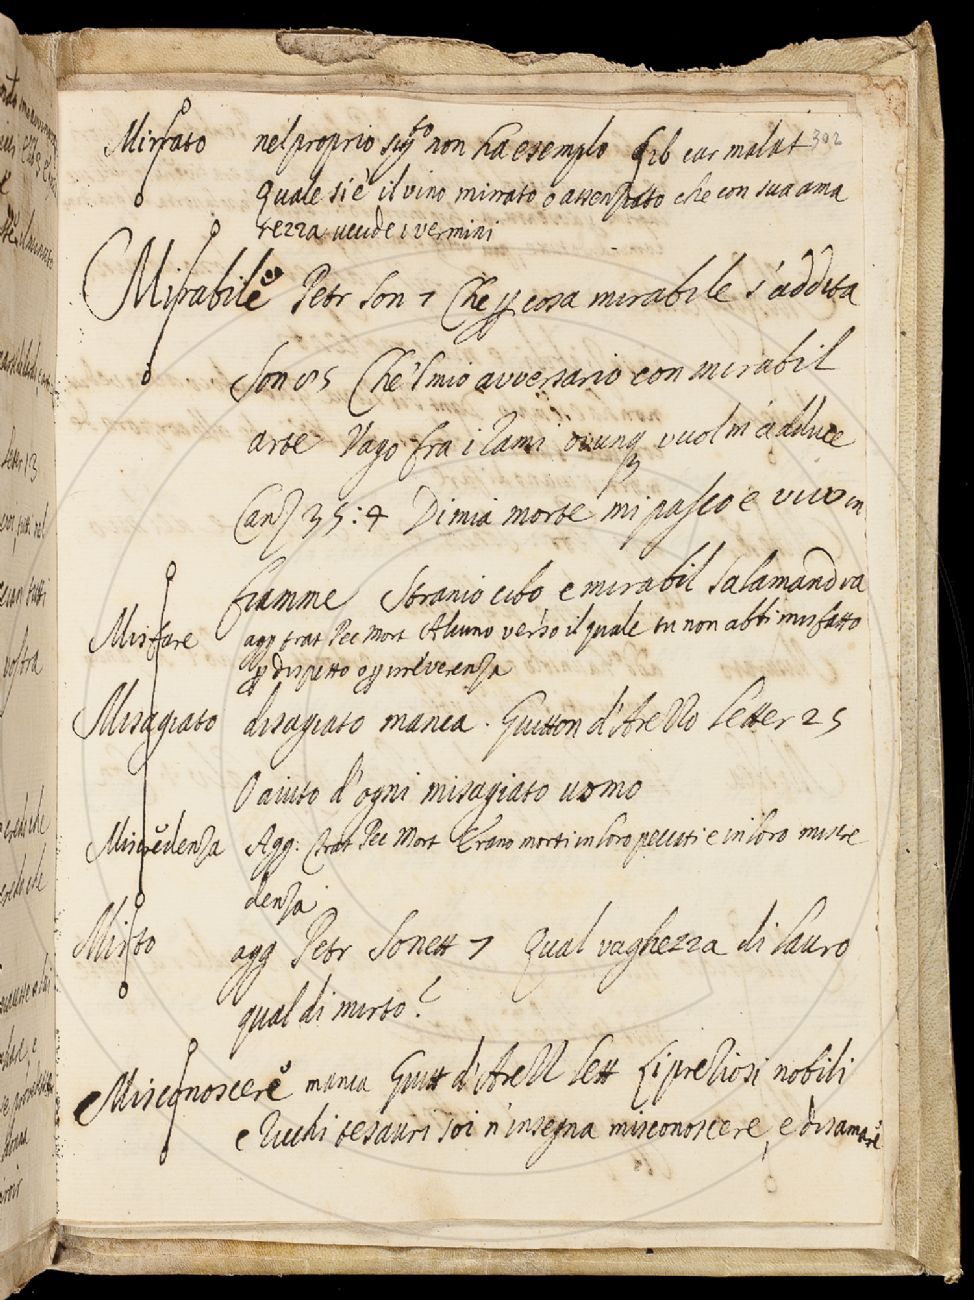 302
Mirrato nel proprio sig.to non ha esempio Lib cur malat
quale si è il vino mirrato o assenziato che con sua ama
rezza uccide i vermini
Mirabile Petr Son 7 Che per cosa mirabile s'addita
Son 85 Che'l mio avversario con mirabil
arte Vago fra i rami ovunq vuol m'adduce
Canz 35:4 Di mia morte mi pasco e vivo in
fiamme Stranio cibo e mirabil Salamandra
Misfare agg trat Pec Mort Alcuno verso il quale tu non abbi misfatto
per dispetto o per inreverenza
Misagiato disagiato manca. Guitton d'Arezzo Letter 25
O aiuto d'ogni misagiato uomo
Miscredenza Agg: Trat Pec Mort Erano morti in loro peccati e in loro miscre
denza
Mirto agg Petr Sonett 7 Qual vaghezza di lauro
qual di mirto?
Misconoscere manca Guitt d'Arezz Lett Li preziosi nobili
e ricchi tesauri soi n'insegna misconoscere, e disamare